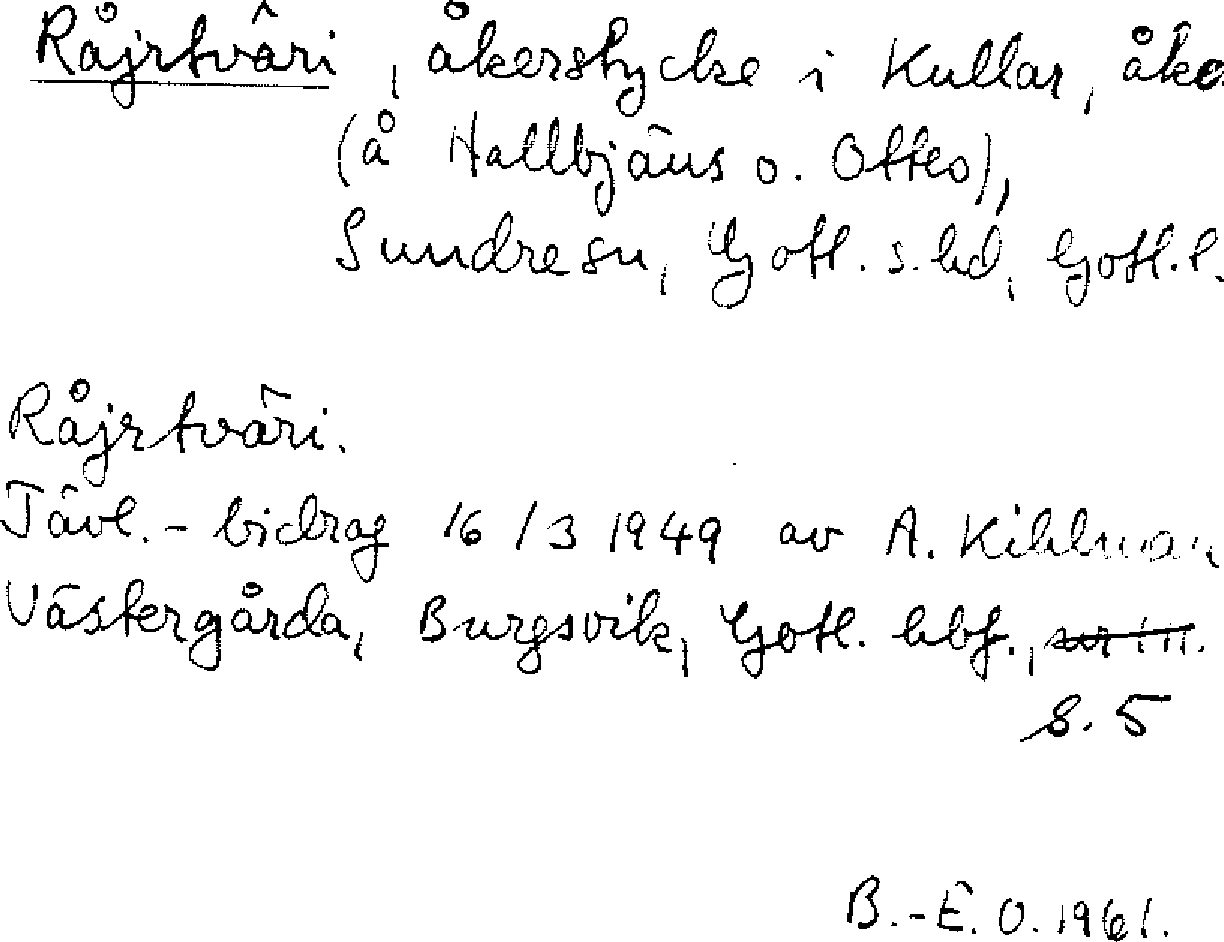 Råjrtväri, åkerstycke i Kullar, åke
(å Hallbjäns o. Ottes),
Sundre sn, Gotl. s. hd, Gotl. l.
Råjrtväri.
Tävl.-bidrag 16/3 1949 av A. Kihlman
Västergårda, Burgsvik, Gotl. hbf.,
s. 5
B.-E. O. 1961.